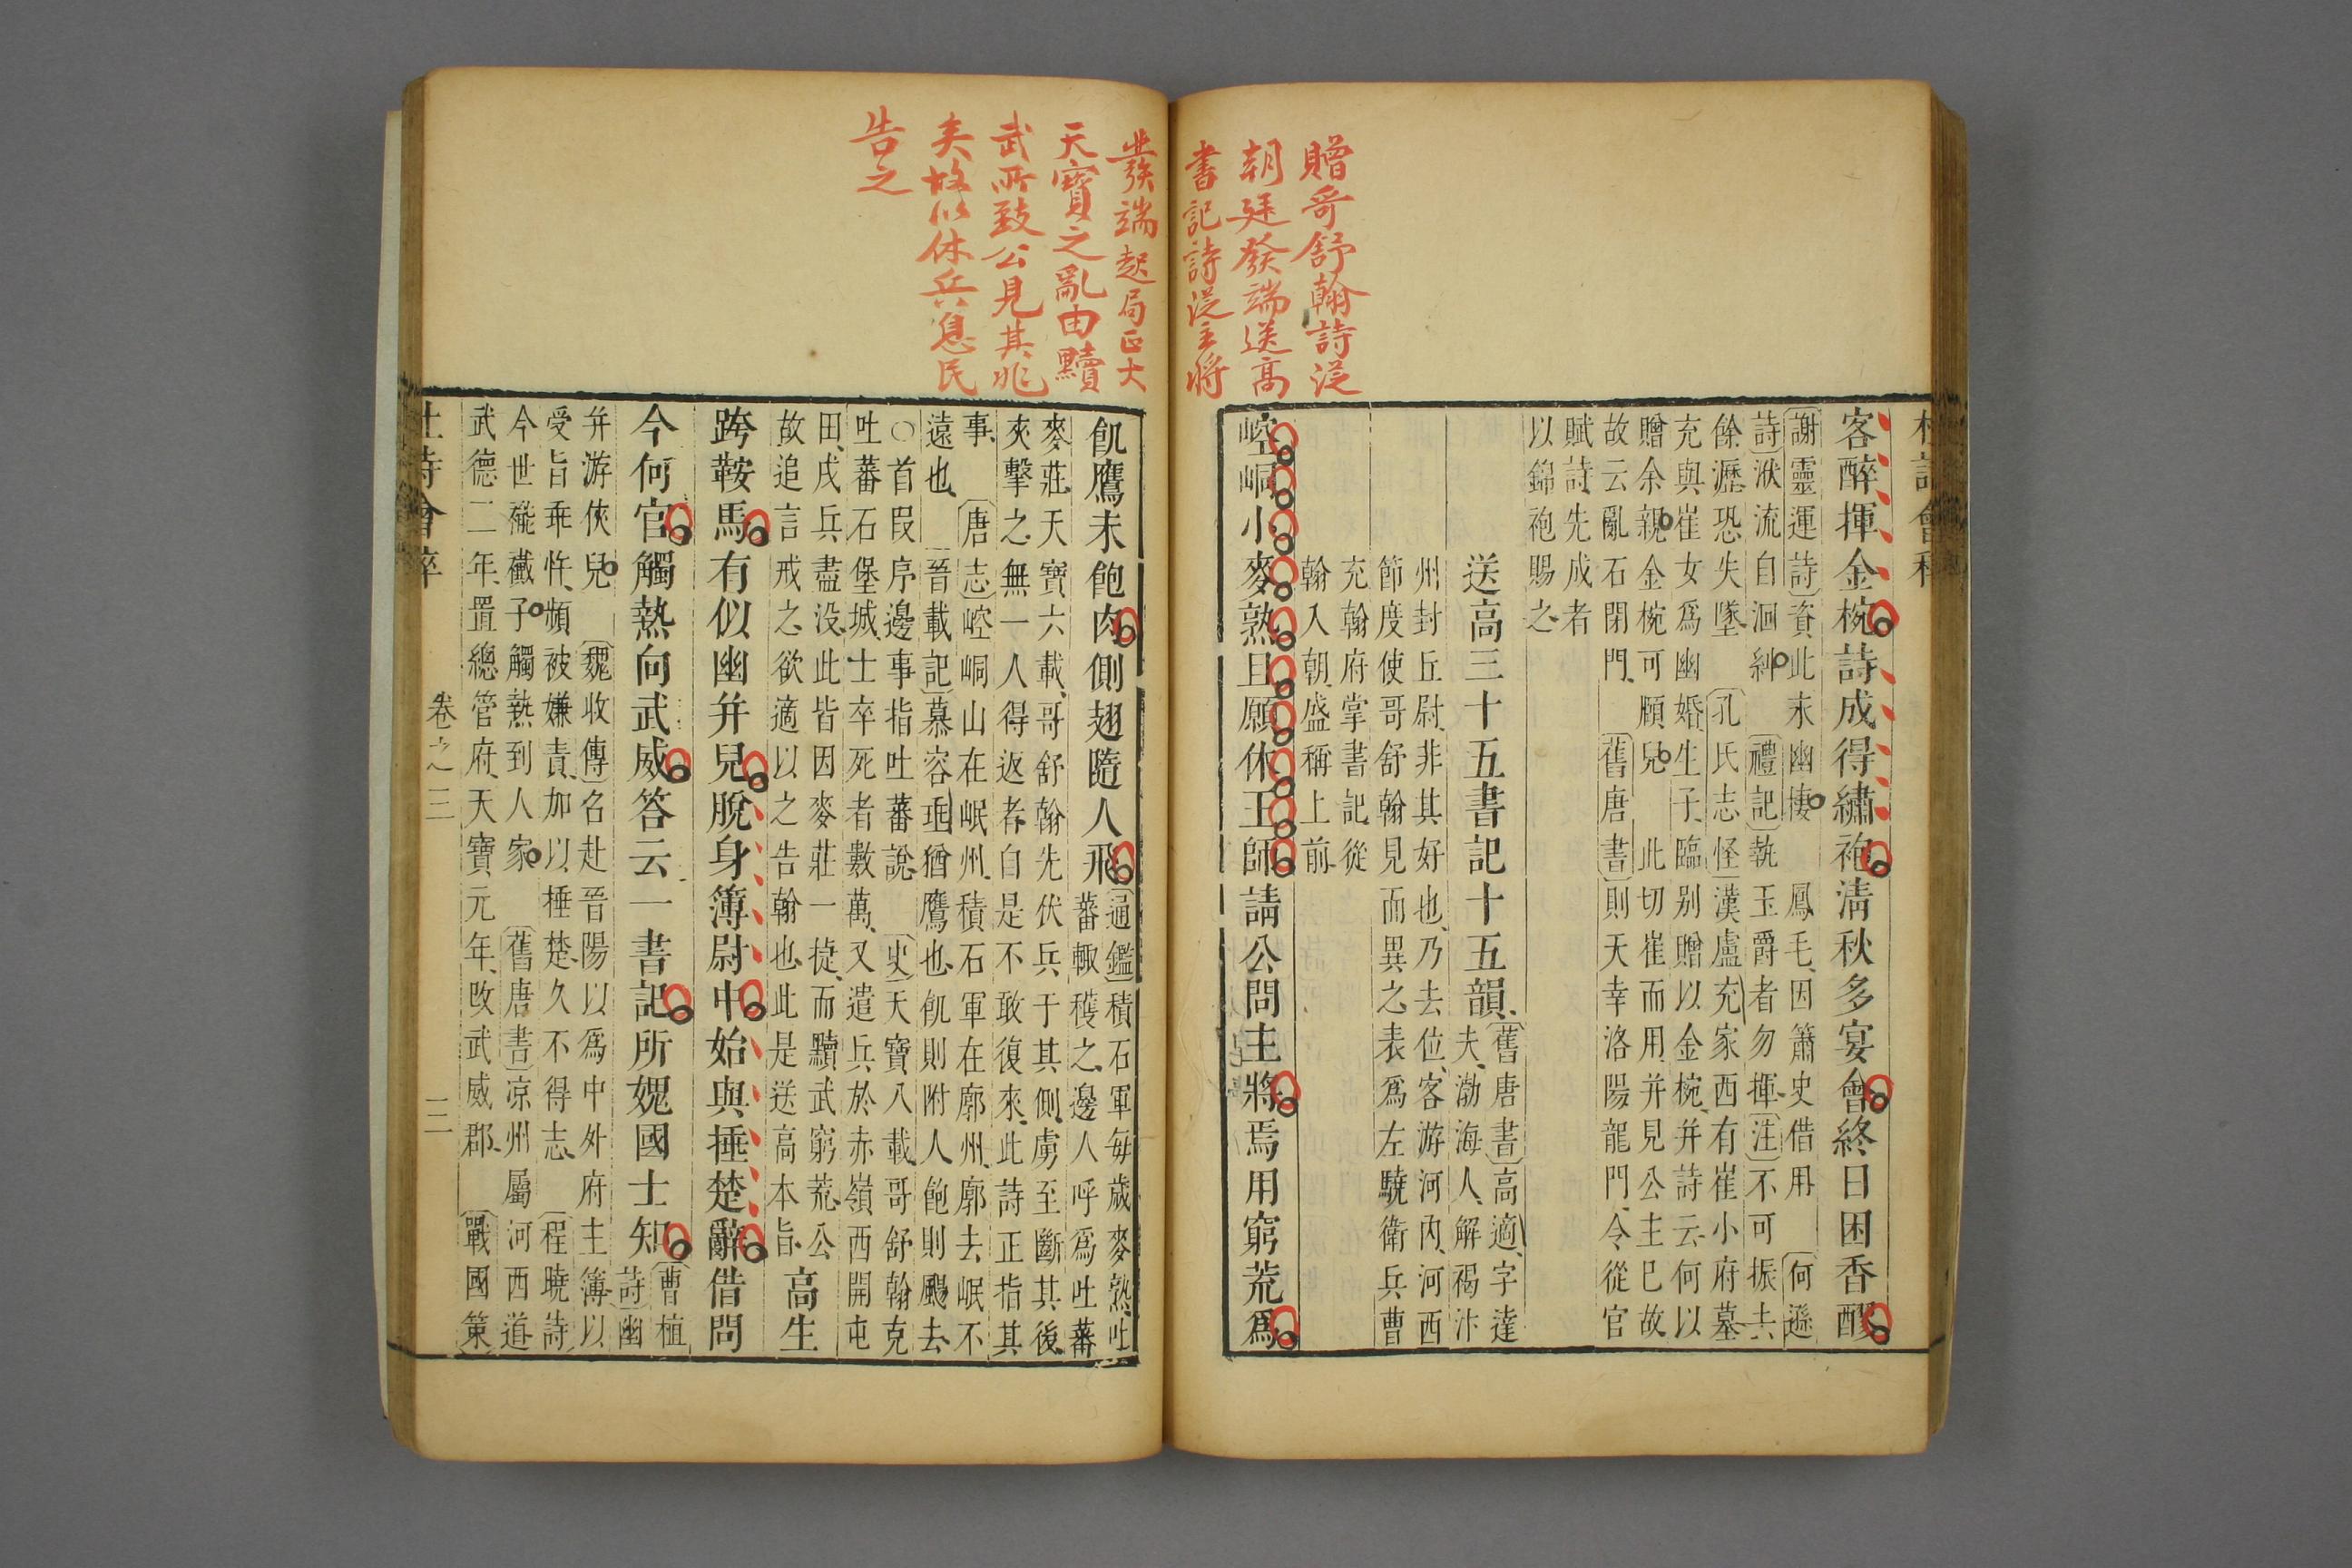 贈哥舒翰詩從
朝廷發端送高
書記詩從主將
發端起局正大
天寶之亂由黷
武所致公見其兆
矣故以休兵息民
告之
客醉揮金椀詩成得繡袍清秋多宴會終日困香醪
謝靈運詩資此末幽棲 鳳毛因簫史借用 何遜
詩洑流自洄糾 禮記執玉爵者勿揮注不可振去
餘瀝恐失墜 孔氏志怪漢盧充家西有崔小府墓
充與崔女爲幽婚生子臨别贈以金椀并詩云何以
贈余親金椀可頤兒 此切崔而用并見公主巳故
故云亂石閉門 舊唐書則天幸洛陽龍門令從官
賦詩先成者
以錦袍賜之
送高三十五書記十五韻
舊唐書高適字達
夫渤海人解褐汴
州封丘尉非其好也乃去位客游河內河西
節度使哥舒翰見而異之表爲左驍衛兵曹
充翰府掌書記從
翰入朝盛稱上前
崆峒小麥熟且願休王師請公問主將焉用窮荒爲
飢鷹未飽肉側翅隨人飛
通鑑積石軍每歲麥熟吐
蕃輙穫之邊人呼爲吐蕃
麥莊天寶六載哥舒翰先伏兵于其側虜至斷其後
夾擊之無一人得返者自是不敢復來此詩正指其
事 唐志崆峒山在岷州積石軍在廓州廓去岷不
遠也 晉載記慕容垂猶鷹也飢則附人飽則颺去
○首叚序邊事指吐蕃說 史天寶八載哥舒翰克
吐蕃石堡城士卒死者數萬又遣兵於赤嶺西開屯
田戍兵盡没此皆因麥莊一捷而黷武窮荒公
故追言戒之欲適以之告翰也此是送高本旨
高生
跨鞍馬有似幽并兒脫身簿尉中始與捶楚辭借問
今何官觸熱向武威答云一書記所媿國士知
曹植
詩幽
并游俠兒 魏收傳名赴晉陽以爲中外府主簿以
受旨乖忤頻被嫌責加以捶楚久不得志 程曉詩
今世褦襶子觸熱到人家 舊唐書凉州屬河西道
武德二年置總管府天寶元年改武威郡 戰國策
卷之三
三